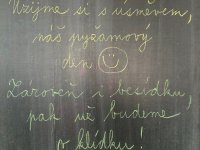 Užijme si s úsměvem,
náš pyžamový
den
Zároveň i besídku,
pak už budeme
v klídku!